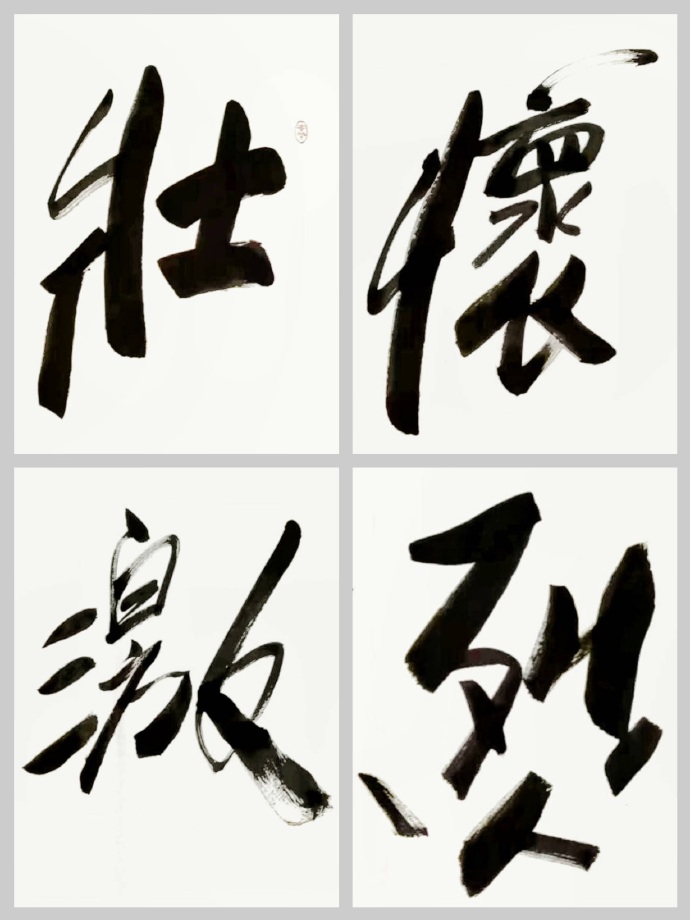 壮懷
激烈